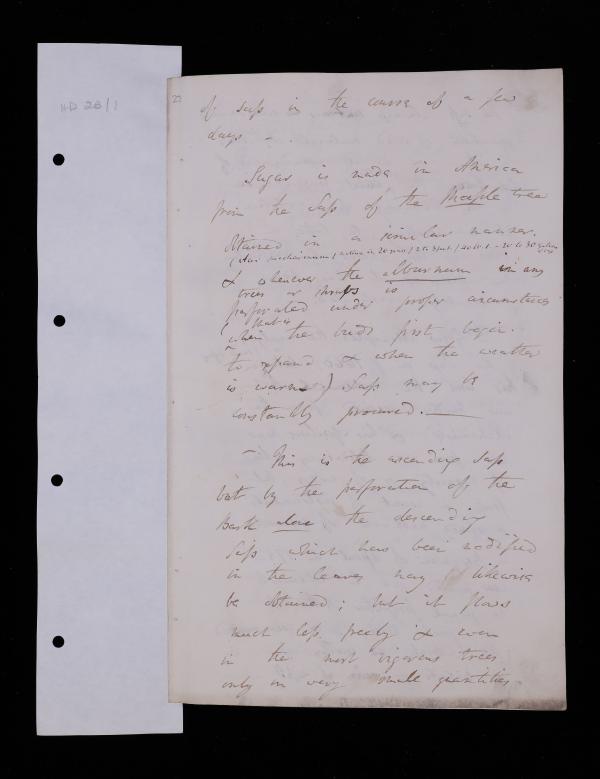 HD 28/1
22
of Sap in the course of a few
days -.
Sugar is made in America
from the Sap of the Maple tree
obtained in a similar manner.
(Acer saccharinum)
& whenever the alburnum in any
trees or shrubs is
perforated under proper circumstances
( that is
when the buds first begin
to expand & when the weather
is warm) Sap may be
constantly procured. —
- This is the ascending Sap
but by the perforation of the
Bark alone the descending
Sap which has been modified
in the leaves may likewise
be obtained; but it flows
much less freely & even
in the most vigorous trees
only in very small quantities